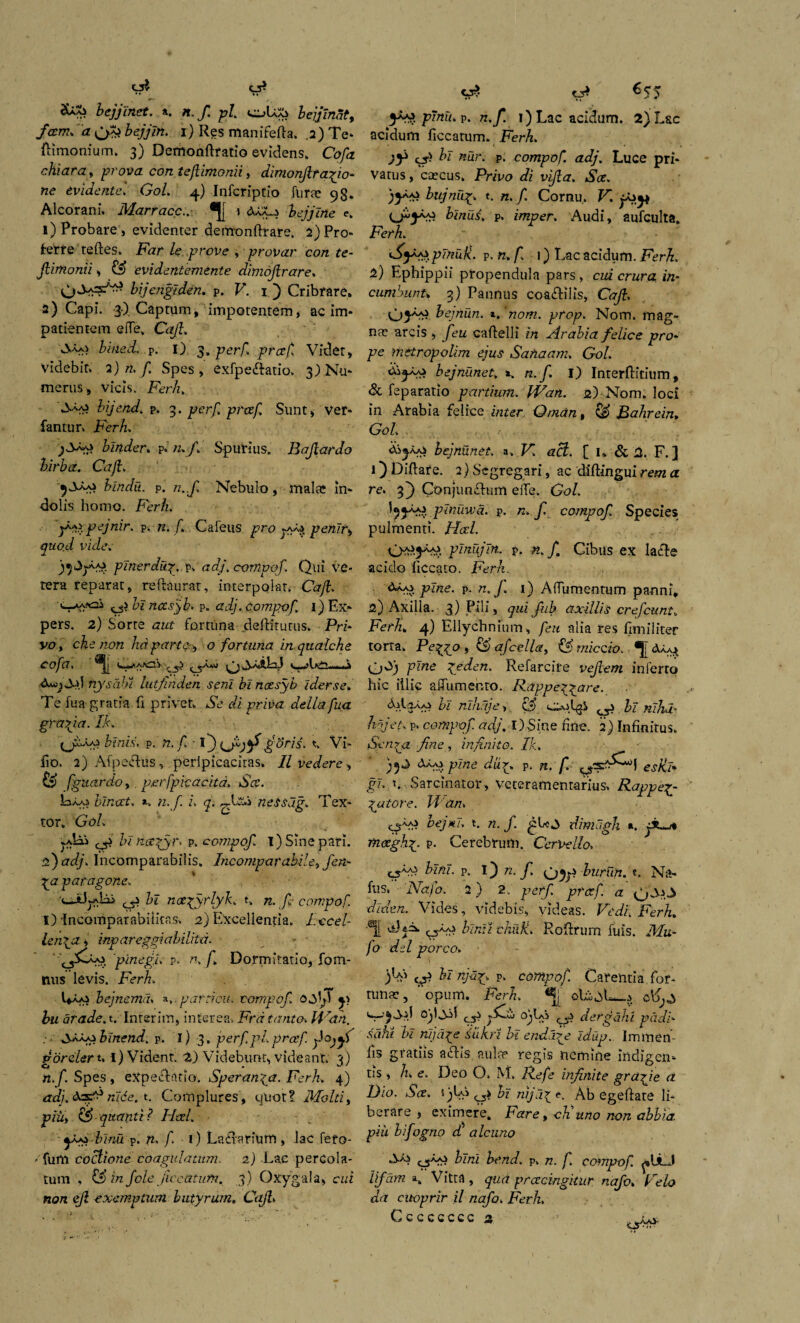 بى بى
بى بى 655
بيّنة bejjinet. a. n. f. pl. بيّنات beijināt,
fœm. a بيّن bejjin. 1) Res manifesta. 2) Te-
stimonium. 3) Demonstratio evidens. Cosa
chiara, prova con testimonii, dimonstrazio-
ne evidente. Gol. 4) Inscriptio suræ 98.
Alcorani. Marracc.. ¶ bejjine e.
1) Probare, evidenter demonstrare. 2) Pro-
ferre testes. Far le prove, provar con te-
stimonii, & evidentemente dimostrare.
bijengiden. p. V. 1) Cribrare.
2) Capi. 3) Captum, impotentem, ac im-
patientem esse, Cast.
bined. p. 1) 3. perf. præf. Videt,
videbit. 2) n. f. Spes, exspectatio. 3) Nu-
merus, vicis. Ferh.
bijend. p. 3. perf. præf. Sunt, ver-
santur. Ferh.
binder. p. n. f. Spurius. Bastardo
birba. Cast.
bindü. p. n. f. Nebulo, malæ in-
dolis homo. Ferh.
pejnir. p. n. f. Caseus pro penir,
quod vide.
pinerdüz. p. adj. compos. Qui ve-
tera reparat, restaurat, interpolat. Cast.
bi næsyb. p. adj. compos. 1) Ex-
pers. 2) Sorte aut fortuna destitutus. Pri-
vo, che non ha parte, o fortuna in qualche
cosa. ¶
nysābi lutfinden seni bi næsyb iderse.
Te sua gratia si privet. Se di priva della sua
grazia. Ik.
بينش binis. p. n. f. 1) göris. t. Vi-
sio. 2) Aspectus, perspicacitas. Il vedere,
& sguardo, perspicacità. Sœ.
binæt. a. n. f. i. q. nessāg. Tex-
tor. Gol.
بى نظير bi næzyr. p. compos. 1) Sine pari.
2) adj. Incomparabilis. Incomparabile, sen-
za paragone.
bi næzyrlyk. t. n. f. compos.
1) Incomparabilitas. 2) Excellentia. Eccel-
lenza, inpareggiabilità.
pinegi. p. n. f. Dormitatio, som-
nus levis. Ferh.
بينما bejnemā. a. particu. compos.
bu ārade. t. Interim, interea. Fra tanto. Wan.
binend. p. 1) 3. perf. pl. præf.
görcler t. 1) Vident. 2) Videbunt, videant. 3)
n. f. Spes, expectatio. Speranza. Ferh. 4)
adj. nīce. t. Complures, quot? Molti,
più, & quanti? Hæl.
بينو binü p. n. f. 1) Lactarium, lac sero-
sum coctione coagulatum. 2) Lac percola-
tum, & in sole siccatum. 3) Oxygala, cui
non est exemptum butyrum. Cast.
پينو pinü. p. n. f. 1) Lac acidum. 2) Lac
acidum siccatum. Ferh.
بى نور bi nūr. p. compos. adj. Luce pri-
vatus, cæcus. Privo di vista. Sœ.
بينوز bujnüz. t. n. f. Cornu. V.
binüs. p. imper. Audi, ausculta.
Ferh.
pinük. p. n. f. 1) Lac acidum. Ferh.
2) Ephippii propendula pars, cui crura in-
cumbunt. 3) Pannus coactilis, Cast.
بينون bejnün. a. nom. prop. Nom. mag-
næ arcis, seu castelli in Arabia felice pro-
pe metropolim ejus Sanaam. Gol.
بينونة bejnünet. a. n. f. 1) Interstitium,
& separatio partium. Wan. 2) Nom. loci
in Arabia felice inter Oman, & Bahrein.
Gol.
بينونة bejnünet. a. V. act. [ 1. & 2. F. ]
1) Distare. 2) Segregari, ac distingui rem a
re. 3) Conjunctum esse. Gol.
pinüwā. p. n. f. compos. Species
pulmenti. Hæl.
pinüjin. p. n. f. Cibus ex lacte
acido siccato. Ferh.
پينه pine. p. n. f. 1) Assumentum panni.
2) Axilla. 3) Pili, qui sub axillis crescunt.
Ferh. 4) Ellychnium, seu alia res similiter
torta. Pezzo, & ascella, & miccio. ¶ پينه
زدن pine zeden. Resarcire vestem inserto
hic illic assumento. Rappezzare.
bi nihāje, & بى نهايت bi nihā-
hājet. p. compos. adj. 1) Sine fine. 2) Infinitus.
Senza fine, infinito. Ik.
پينه دوز pine düz. p. n. f. eski-
gi. t. Sarcinator, veteramentarius. Rappez-
zatore. Wan.
بينى bejni. t. n. f. دماغ dimāgh a.
mæghz. p. Cerebrum. Cervello.
بينى bini. p. 1) n. f. بورون burün. t. Na-
sus. Naso. 2) 2. perf. præf. a ديدن
diden. Vides, videbis, videas. Vedi. Ferh.
¶ binii chūk. Rostrum suis. Mu-
so del porco.
بى نياز bi njāz. p. compos. Carentia for-
tunæ, opum. Ferh. ¶
dergāhi pādi-
sāhi bi nijāze sükri bi endāze idüp. Immen-
sis gratiis actis aulæ regis nemine indigen-
tis, h. e. Deo O. M. Refe infinite grazie a
Dio. Sœ. bi nijāz e. Ab egestate li-
berare, eximere. Fare, ch'uno non abbia
più bisogno d'alcuno
بينى بند bini bend. p. n. f. compos. لثام
lifām a. Vitta, qua præcingitur naso. Velo
da cuoprir il naso. Ferh.
Ccccccc 2
بينى